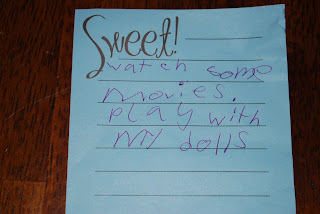 Sweet!
watch some
movies.
play with
my dolls